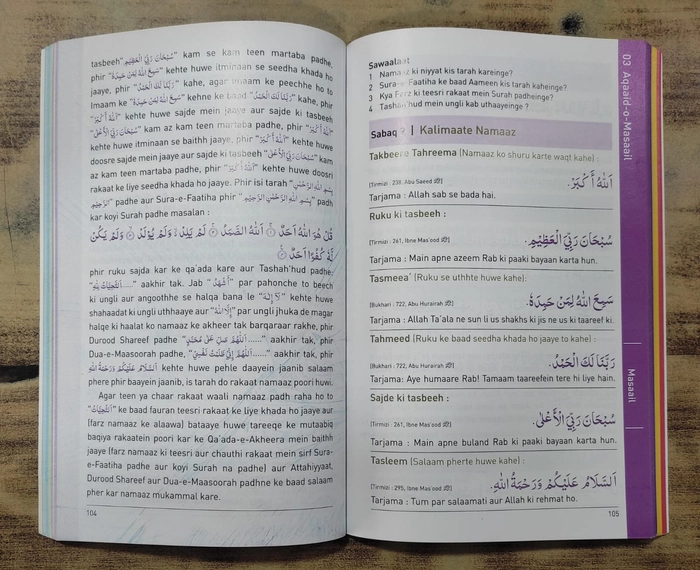 tasbeeh "سُبْحَانَ رَبِّيَ الْعَظِيْمِ" kam se kam teen martaba padhe,
phir "سَمِعَ اللّٰهُ لِمَنْ حَمِدَهٗ" kehte huwe itminaan se seedha khada ho
jaaye, phir "رَبَّنَا لَكَ الْحَمْدُ" kahe, agar imaam ke peechhe ho to
Imaam ke "سَمِعَ اللّٰهُ لِمَنْ حَمِدَهٗ" kehne ke baad "رَبَّنَا لَكَ الْحَمْدُ" kahe, phir
"اَللّٰهُ اَكْبَرُ" kehte huwe sajde mein jaaye aur sajde ki tasbeeh
"سُبْحَانَ رَبِّيَ الْاَعْلٰى" kam az kam teen martaba padhe, phir "اَللّٰهُ اَكْبَرُ"
kehte huwe itminaan se baithh jaaye, phir "اَللّٰهُ اَكْبَرُ" kehte huwe
doosre sajde mein jaaye aur sajde ki tasbeeh "سُبْحَانَ رَبِّيَ الْاَعْلٰى" kam
az kam teen martaba padhe, phir "اَللّٰهُ اَكْبَرُ" kehte huwe doosri
rakaat ke liye seedha khada ho jaaye. Phir isi tarah "بِسْمِ اللّٰهِ الرَّحْمٰنِ
الرَّحِيْمِ" padhe aur Sura-e-Faatiha phir "بِسْمِ اللّٰهِ الرَّحْمٰنِ الرَّحِيْمِ" padh
kar koyi Surah padhe masalan :
قُلْ هُوَ اللّٰهُ اَحَدٌ ۝ اَللّٰهُ الصَّمَدُ ۝ لَمْ يَلِدْ ۙ وَلَمْ يُوْلَدْ ۝ وَلَمْ يَكُنْ
لَّهٗ كُفُوًا اَحَدٌ ۝
phir ruku sajda kar ke qa'ada kare aur Tashah'hud padhe:
"اَلتَّحِيَّاتُ لِلّٰهِ....." aakhir tak. Jab "اَشْهَدُ" par pahonche to beech
ki ungli aur angoothhe se halqa bana le "لَآ اِلٰهَ" kehte huwe
shahaadat ki ungli uthhaaye aur "اِلَّا اللّٰهُ" par ungli jhuka de magar
halqe ki haalat ko namaaz ke akheer tak barqaraar rakhe, phir
Durood Shareef padhe "اَللّٰهُمَّ صَلِّ عَلٰى مُحَمَّدٍ......" aakhir tak, phir
Dua-e-Maasoorah padhe, "اَللّٰهُمَّ اِنِّيْ ظَلَمْتُ نَفْسِيْ......" aakhir tak, phir
"اَلسَّلَامُ عَلَيْكُمْ وَرَحْمَةُ اللّٰهِ" kehte huwe pehle daayein jaanib salaam
phere phir baayein jaanib, is tarah do rakaat namaaz poori huwi.
Agar teen ya chaar rakaat waali namaaz padh raha ho to
"اَلتَّحِيَّاتُ" ke baad fauran teesri rakaat ke liye khada ho jaaye aur
(farz namaaz ke alaawa) bataaye huwe tareeqe ke mutaabiq
baqiya rakaatein poori kar ke Qa'ada-e-Akheera mein baithh
jaaye (farz namaaz ki teesri aur chauthi rakaat mein sirf Sura-
e-Faatiha padhe aur koyi Surah na padhe) aur Attahiyyaat,
Durood Shareef aur Dua-e-Maasoorah padhne ke baad salaam
pher kar namaaz mukammal kare.
104
Sawaalaat
1 Namaaz ki niyyat kis tarah kareinge?
2 Sura-e-Faatiha ke baad Aameen kis tarah kaheinge?
3 Kya Farz ki teesri rakaat mein Surah padheinge?
4 Tashah'hud mein ungli kab uthaayeinge ?
Sabaq | Kalimaate Namaaz
Takbeere Tahreema (Namaaz ko shuru karte waqt kahe) :
[Tirmizi : 238, Abu Saeed] اَللّٰهُ اَكْبَرُ.
Tarjama : Allah sab se bada hai.
Ruku ki tasbeeh :
[Tirmizi : 261, Ibne Mas'ood] سُبْحَانَ رَبِّيَ الْعَظِيْمِ.
Tarjama : Main apne azeem Rab ki paaki bayaan karta hun.
Tasmeea' (Ruku se uthhte huwe kahe) :
[Bukhari : 722, Abu Hurairah] سَمِعَ اللّٰهُ لِمَنْ حَمِدَهٗ.
Tarjama : Allah Ta'ala ne sun li us shakhs ki jis ne us ki taareef ki.
Tahmeed (Ruku ke baad seedha khada ho jaaye to kahe) :
[Bukhari : 722, Abu Hurairah] رَبَّنَا لَكَ الْحَمْدُ.
Tarjama: Aye humaare Rab! Tamaam taareefein tere hi liye hain.
Sajde ki tasbeeh :
[Tirmizi : 261, Ibne Mas'ood] سُبْحَانَ رَبِّيَ الْاَعْلٰى.
Tarjama : Main apne buland Rab ki paaki bayaan karta hun.
Tasleem (Salaam pherte huwe kahe) :
[Tirmizi : 295, Ibne Mas'ood] اَلسَّلَامُ عَلَيْكُمْ وَرَحْمَةُ اللّٰهِ.
Tarjama : Tum par salaamati aur Allah ki rehmat ho.
105
03 Aqaaid-o-Masaail
Masaail